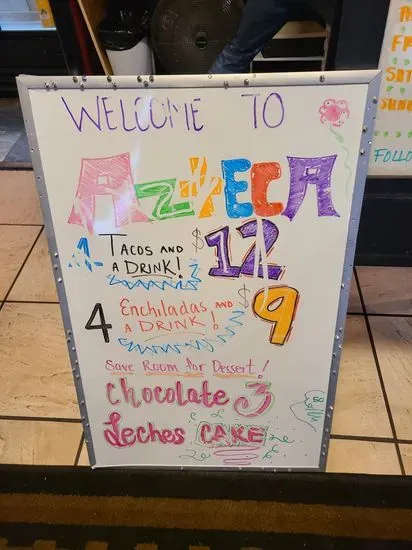 WELCOME TO
AZTECA
4 TACOS AND A DRINK! $12
4 ENCHILADAS AND A DRINK! $9
SAVE ROOM FOR DESSERT!
Chocolate 3
Leches CAKE
FR
SAT
SUN
FOLLO